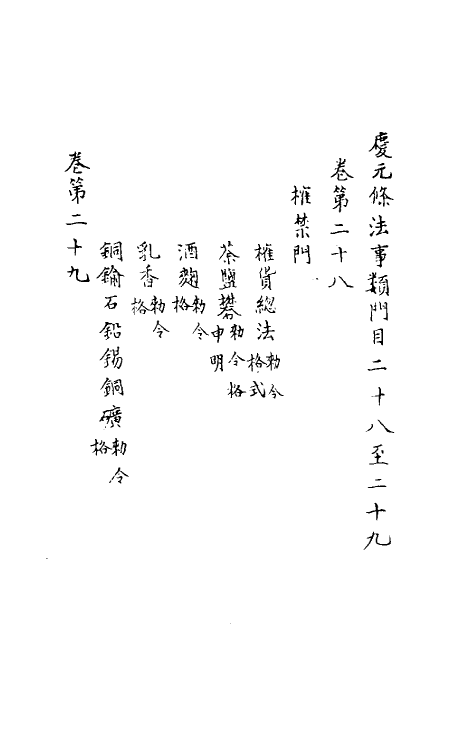 慶元條法事類門目二十八至二十九
卷第二十八
榷禁門
榷貨總法勑令格式
茶鹽礬勑令格申明
酒麴勑令格
乳香勑令格
銅鍮石鉛錫銅礦勑令格
卷第二十九